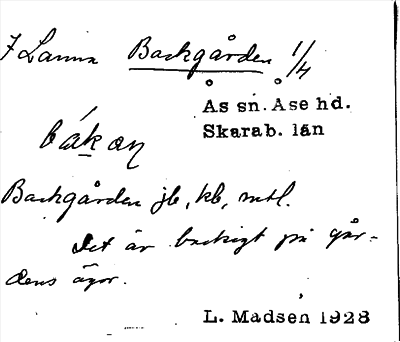 7 Lanna Backgården 1/4
Ås sn. Åse hd.
Skarab. län
bák en
Backgården jb, kb, mtl.
Det är backigt på går-
dens ägor.
L. Madsen 1928